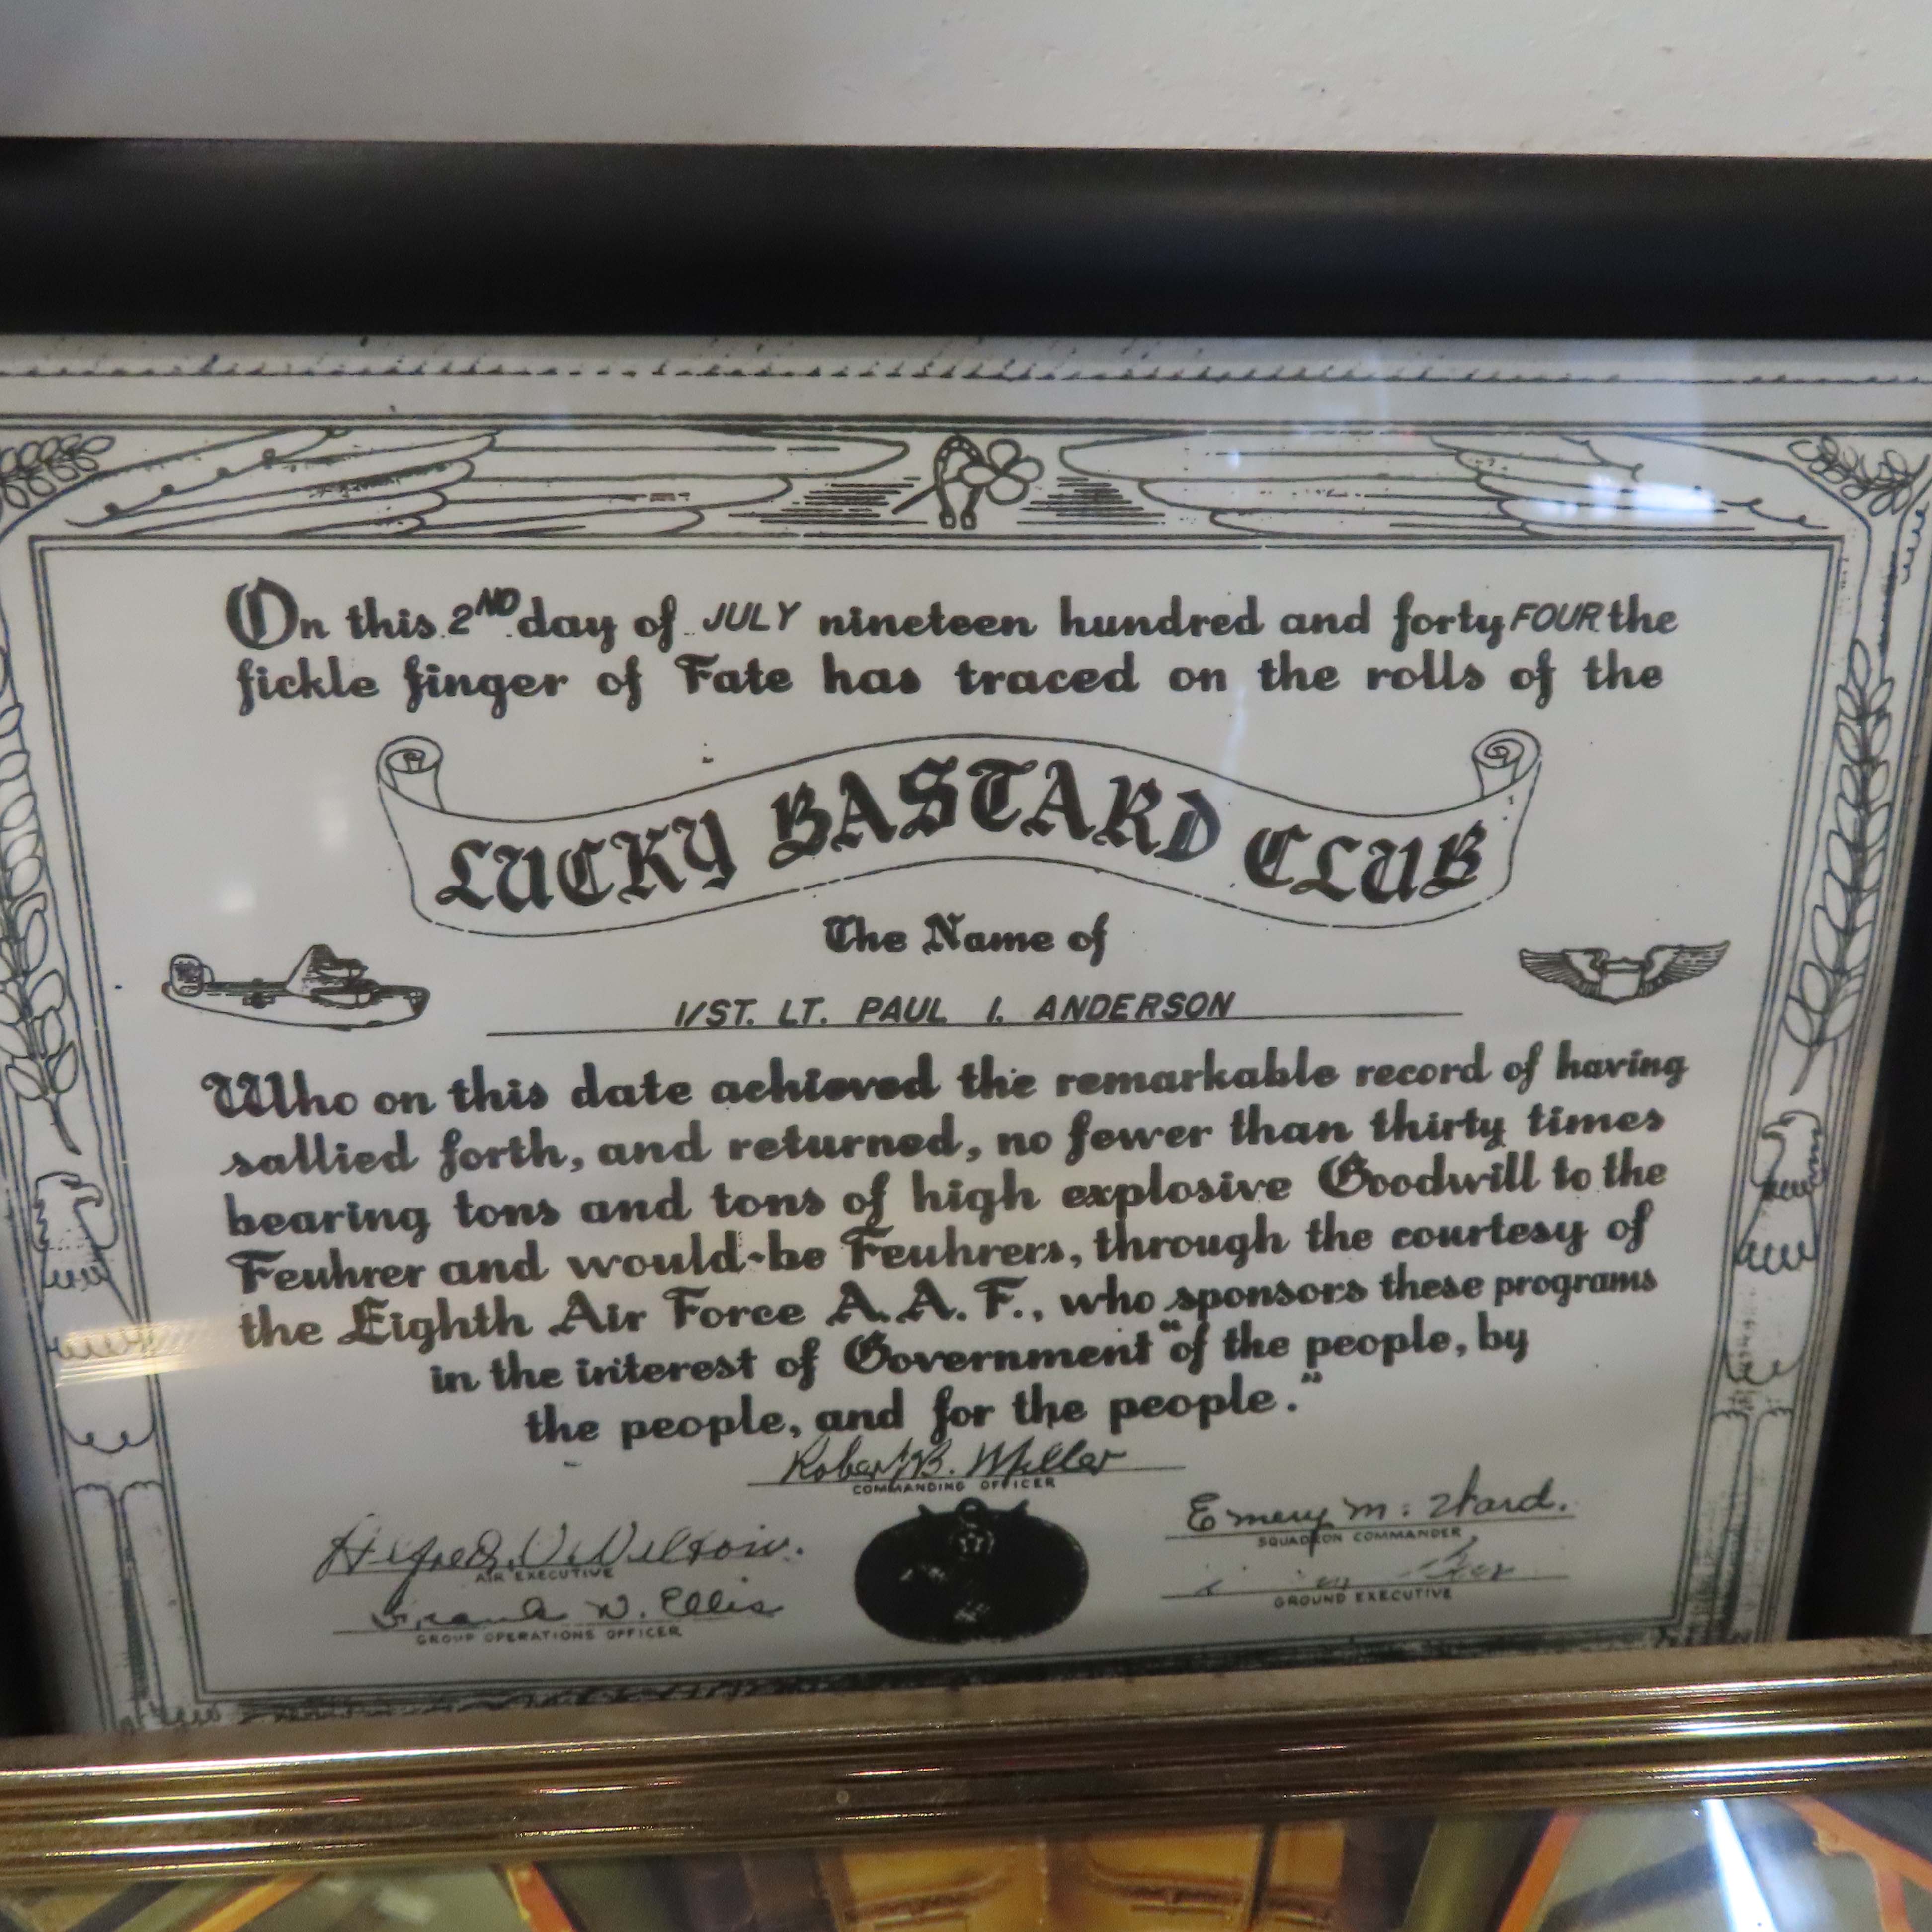 On this 2ND day of JULY nineteen hundred and forty FOUR the
fickle finger of Fate has traced on the rolls of the
LUCKY BASTARD CLUB
The Name of
1/ST. LT. PAUL I. ANDERSON
Who on this date achieved the remarkable record of having
sallied forth, and returned, no fewer than thirty times
bearing tons and tons of high explosive Goodwill to the
Feuhrer and would-be Feuhrers, through the courtesy of
the Eighth Air Force A.A.F., who sponsors these programs
in the interest of Government "of the people, by
the people, and for the people."
Robert B. Miller
COMMANDING OFFICER
Emery M. Ward.
SQUADRON COMMANDER
AIR EXECUTIVE
GROUND EXECUTIVE
Frank W. Ellis
GROUP OPERATIONS OFFICER